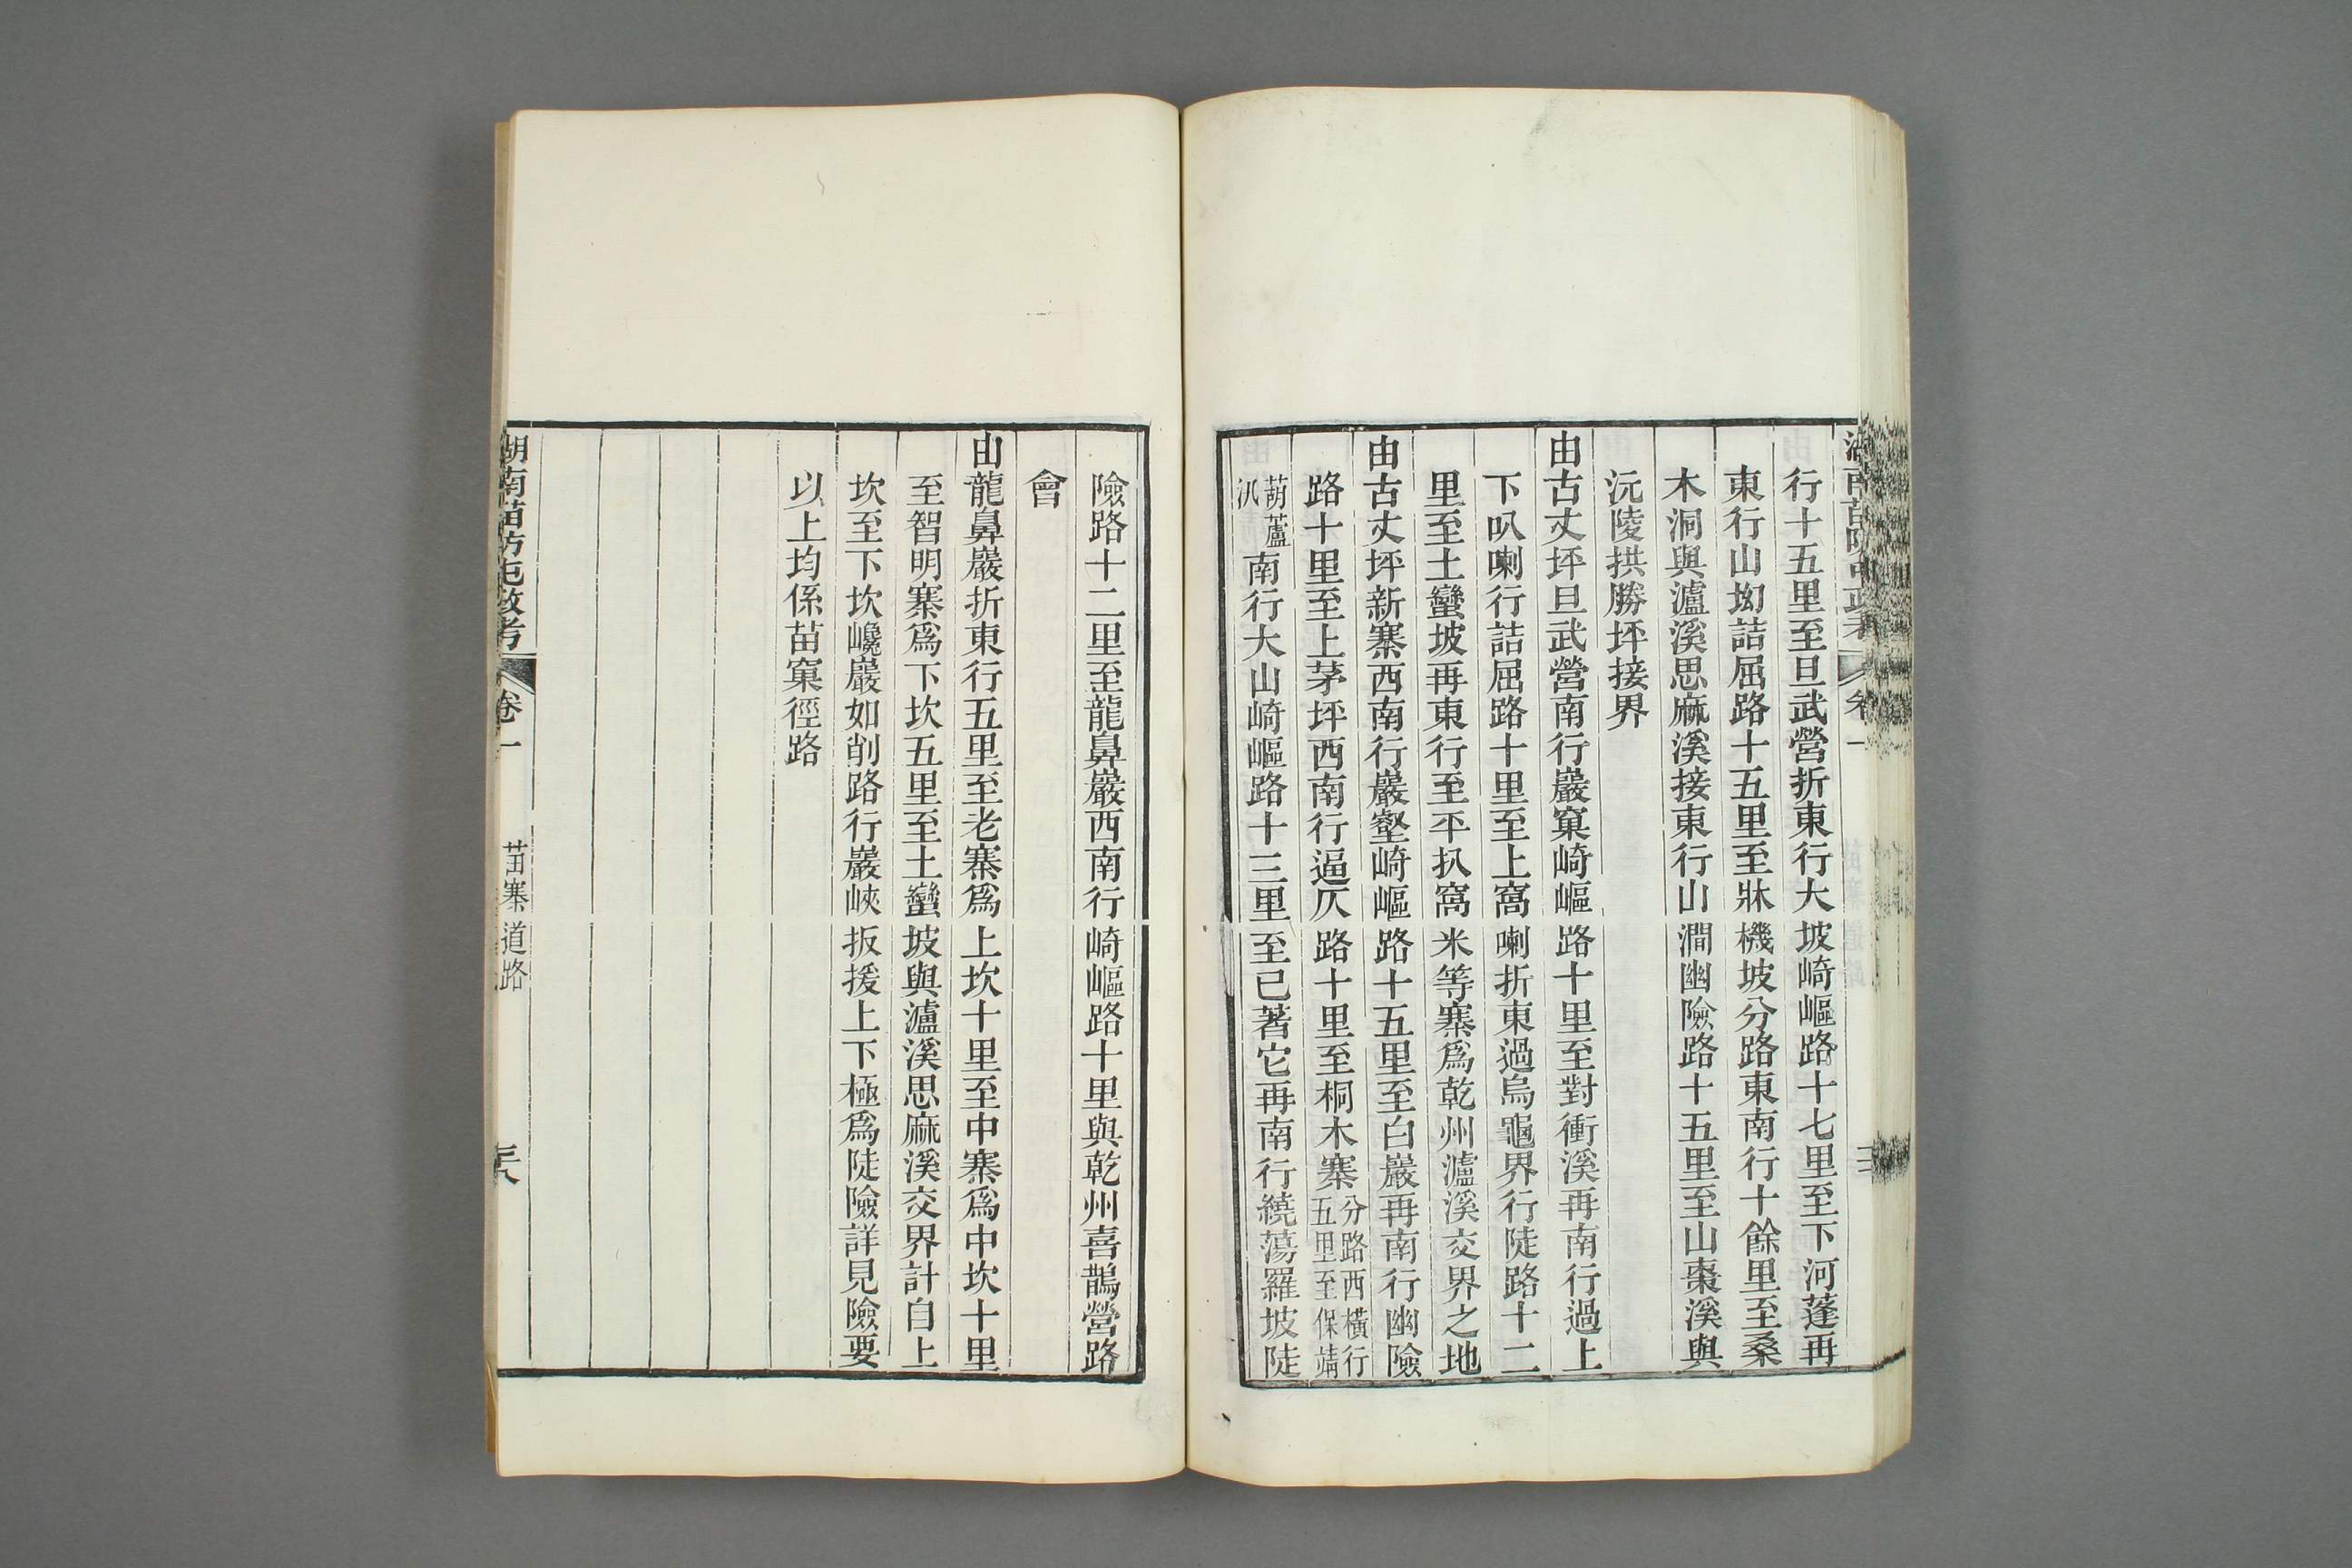 行十五里至旦武營折東行大坡崎嶇路十七里至下河蓬再
東行山坳詰屈路十五里至牀機坡分路東南行十餘里至桑
木洞與瀘溪思麻溪接東行山澗幽險路十五里至山棗溪與
沅陵拱勝坪接界
由古丈坪旦武營南行巖窠崎嶇路十里至對衝溪再南行過上
下叺喇行詰屈路十里至上窩喇折東過烏龜界行陡路十二
里至土蠻坡再東行至平扒窩米等寨爲乾州瀘溪交界之地
由古丈坪新寨西南行巖壑崎嶇路十五里至白巖再南行幽險
路十里至上茅坪西南行逼仄路十里至桐木寨分路西橫行五里至保靖
葫蘆汛南行大山崎嶇路十三里至已著它再南行繞蕩羅坡陡
險路十二里至龍鼻巖西南行崎嶇路十里與乾州喜鵲營路
會
由龍鼻巖折東行五里至老寨爲上坎十里至中寨爲中坎十里
至智明寨爲下坎五里至土蠻坡與瀘溪思麻溪交界計自上
坎至下坎巉巖如削路行巖峽扳援上下極爲陡險詳見險要
以上均係苗窠徑路
湖南苗防屯政考 卷一 苗寨道路 三八